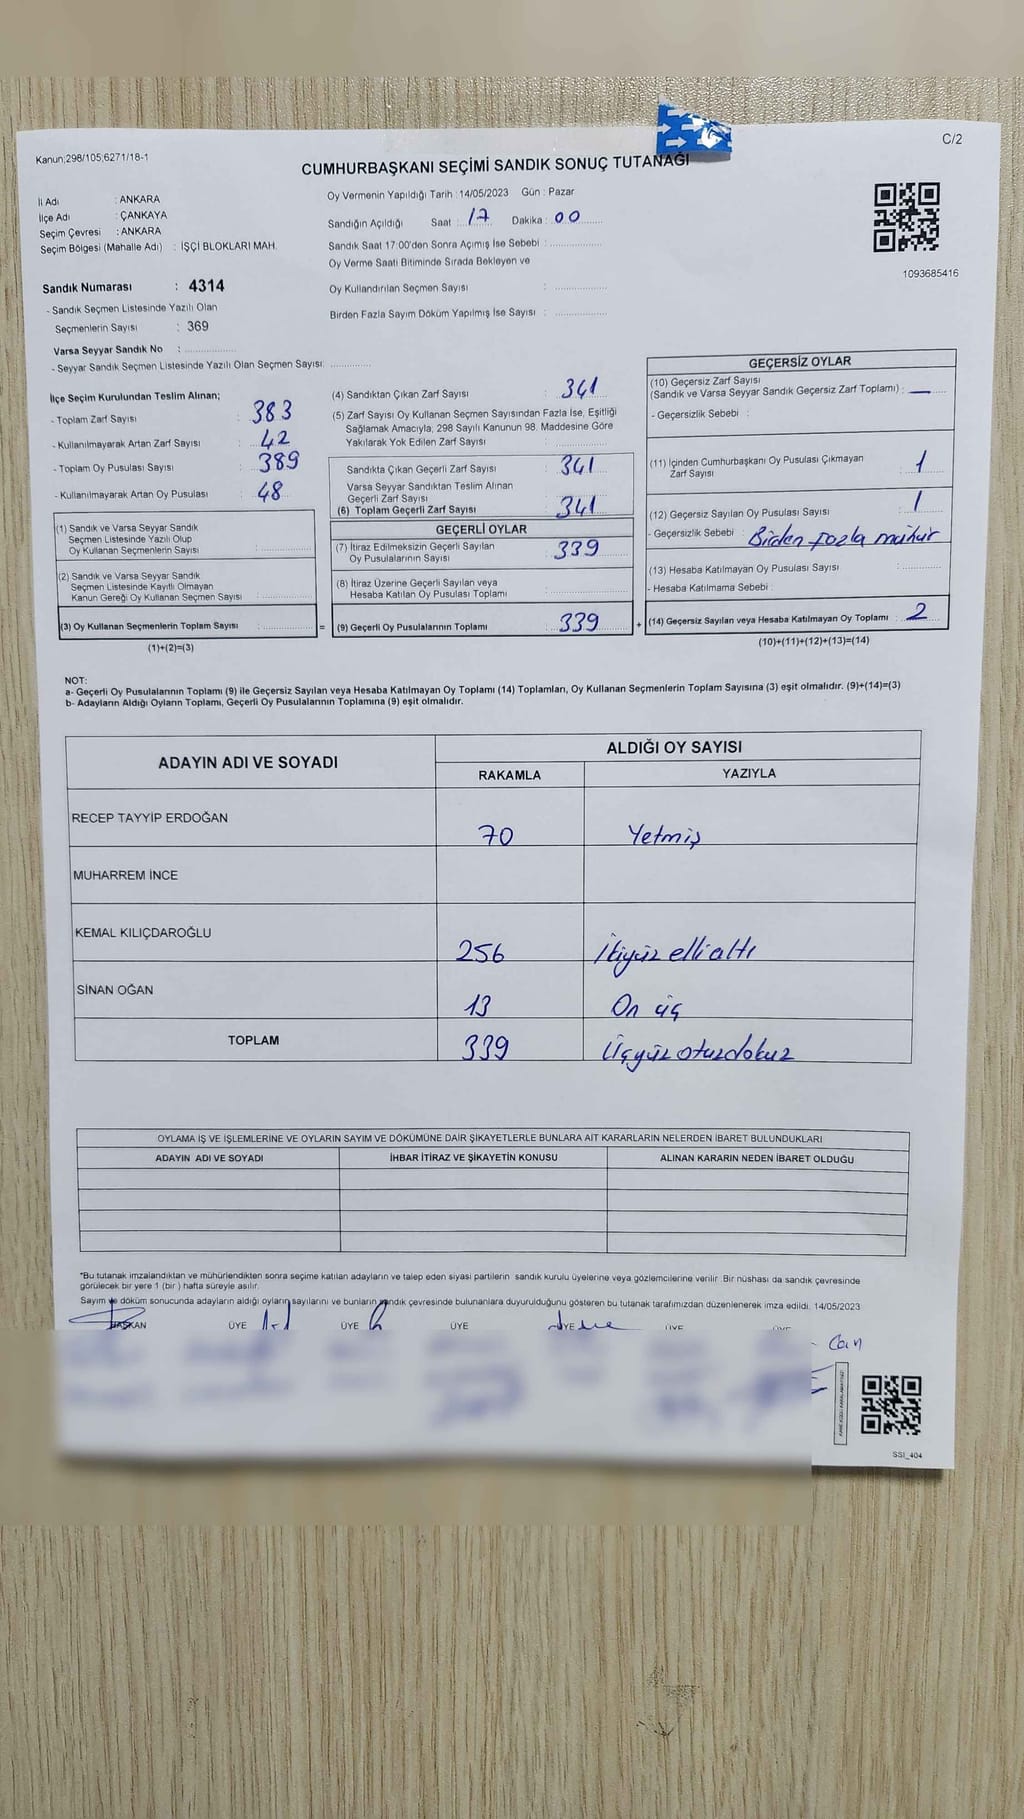 C/2
Kanun;298/105;6271/18-1
CUMHURBAŞKANI SEÇİMİ SANDIK SONUÇ TUTANAĞI
İl Adı : ANKARA
İlçe Adı : ÇANKAYA
Seçim Çevresi : ANKARA
Seçim Bölgesi (Mahalle Adı) : İŞÇİ BLOKLARI MAH.
Oy Vermenin Yapıldığı Tarih : 14/05/2023 Gün : Pazar
Sandığın Açıldığı Saat : 17 Dakika : 00
Sandık Saat 17:00'den Sonra Açımış İse Sebebi :
Oy Verme Saati Bitiminde Sırada Bekleyen ve
Oy Kullandırılan Seçmen Sayısı :
Birden Fazla Sayım Döküm Yapılmış İse Sayısı :
1093685416
Sandık Numarası : 4314
- Sandık Seçmen Listesinde Yazılı Olan
Seçmenlerin Sayısı : 369
Varsa Seyyar Sandık No :
- Seyyar Sandık Seçmen Listesinde Yazılı Olan Seçmen Sayısı:
İlçe Seçim Kurulundan Teslim Alınan;
- Toplam Zarf Sayısı : 383
- Kullanılmayarak Artan Zarf Sayısı : 42
- Toplam Oy Pusulası Sayısı : 389
- Kullanılmayarak Artan Oy Pusulası : 48
(1) Sandık ve Varsa Seyyar Sandık
Seçmen Listesinde Yazılı Olup
Oy Kullanan Seçmenlerin Sayısı :
(2) Sandık ve Varsa Seyyar Sandık
Seçmen Listesinde Kayıtlı Olmayan
Kanun Gereği Oy Kullanan Seçmen Sayısı :
(3) Oy Kullanan Seçmenlerin Toplam Sayısı : =
(1)+(2)=(3)
(4) Sandıktan Çıkan Zarf Sayısı : 341
(5) Zarf Sayısı Oy Kullanan Seçmen Sayısından Fazla İse, Eşitliği
Sağlamak Amacıyla; 298 Sayılı Kanunun 98. Maddesine Göre
Yakılarak Yok Edilen Zarf Sayısı :
Sandıkta Çıkan Geçerli Zarf Sayısı : 341
Varsa Seyyar Sandıktan Teslim Alınan
Geçerli Zarf Sayısı :
(6) Toplam Geçerli Zarf Sayısı : 341
GEÇERLİ OYLAR
(7) İtiraz Edilmeksizin Geçerli Sayılan
Oy Pusulalarının Sayısı : 339
(8) İtiraz Üzerine Geçerli Sayılan veya
Hesaba Katılan Oy Pusulası Toplamı :
(9) Geçerli Oy Pusulalarının Toplamı : 339 +
GEÇERSİZ OYLAR
(10) Geçersiz Zarf Sayısı
(Sandık ve Varsa Seyyar Sandık Geçersiz Zarf Toplamı) : —
- Geçersizlik Sebebi :
(11) İçinden Cumhurbaşkanı Oy Pusulası Çıkmayan
Zarf Sayısı : 1
(12) Geçersiz Sayılan Oy Pusulası Sayısı : 1
- Geçersizlik Sebebi : Birden fazla mühür
(13) Hesaba Katılmayan Oy Pusulası Sayısı :
- Hesaba Katılmama Sebebi :
(14) Geçersiz Sayılan veya Hesaba Katılmayan Oy Toplamı : 2
(10)+(11)+(12)+(13)=(14)
NOT:
a- Geçerli Oy Pusulalarının Toplamı (9) ile Geçersiz Sayılan veya Hesaba Katılmayan Oy Toplamı (14) Toplamları, Oy Kullanan Seçmenlerin Toplam Sayısına (3) eşit olmalıdır. (9)+(14)=(3)
b- Adayların Aldığı Oyların Toplamı, Geçerli Oy Pusulalarının Toplamına (9) eşit olmalıdır.
ADAYIN ADI VE SOYADI
ALDIĞI OY SAYISI
RAKAMLA YAZIYLA
RECEP TAYYİP ERDOĞAN 70 Yetmiş
MUHARREM İNCE
KEMAL KILIÇDAROĞLU 256 İkiyüz ellialtı
SİNAN OĞAN 13 On üç
TOPLAM 339 Üçyüz otuzdokuz
OYLAMA İŞ VE İŞLEMLERİNE VE OYLARIN SAYIM VE DÖKÜMÜNE DAİR ŞİKAYETLERLE BUNLARA AİT KARARLARIN NELERDEN İBARET BULUNDUKLARI
ADAYIN ADI VE SOYADI İHBAR İTİRAZ VE ŞİKAYETİN KONUSU ALINAN KARARIN NEDEN İBARET OLDUĞU
*Bu tutanak imzalandıktan ve mühürlendikten sonra seçime katılan adayların ve talep eden siyasi partilerin sandık kurulu üyelerine veya gözlemcilerine verilir. Bir nüshası da sandık çevresinde
görülecek bir yere 1 (bir) hafta süreyle asılır.
Sayım ve döküm sonucunda adayların aldığı oyların sayılarını ve bunların sandık çevresinde bulunanlara duyurulduğunu gösteren bu tutanak tarafımızdan düzenlenerek imza edildi. 14/05/2023
BAŞKAN ÜYE ÜYE ÜYE ÜYE ÜYE ÜYE
Can
SSI_404